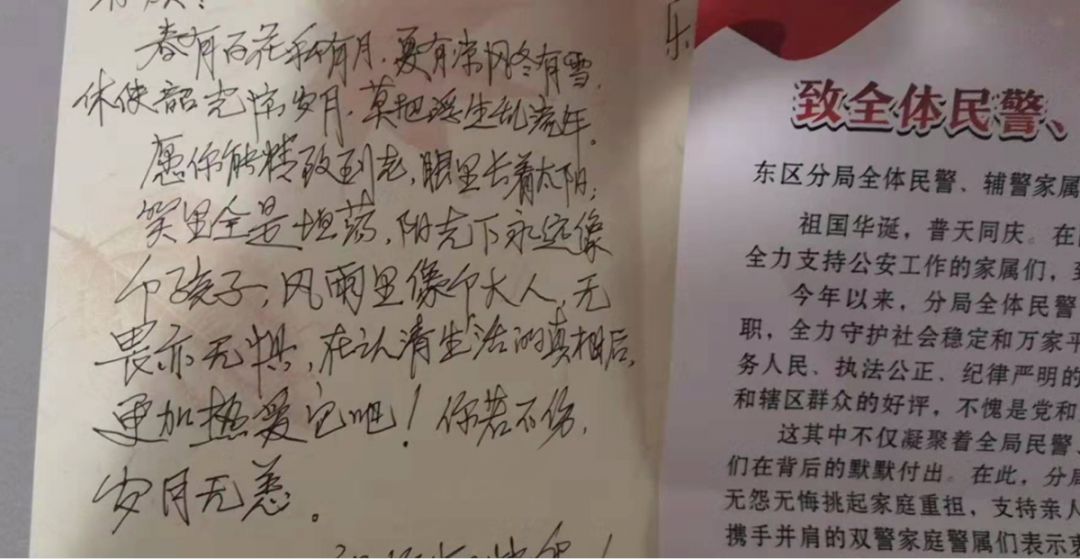 春有百花秋有月，夏有凉风冬有雪，
休使韶光惊岁月，莫把浮生乱流年。
愿你能精致到老，眼里长着太阳，
笑里全是坦荡，阳光下永远像
个孩子，风雨里像个大人，无
畏亦无惧，在认清生活的真相后，
更加热爱它吧！你若不伤，
岁月无恙。
乐
致全体民警、
东区分局全体民警、辅警家属
祖国华诞，普天同庆。在
全力支持公安工作的家属们，
今年以来，分局全体民警
职，全力守护社会稳定和万家平
务人民、执法公正、纪律严明的
和辖区群众的好评，不愧是党和
这其中不仅凝聚着全局民警、
们在背后的默默付出。在此，分局
无怨无悔挑起家庭重担，支持亲人
携手并肩的双警家庭警属们表示